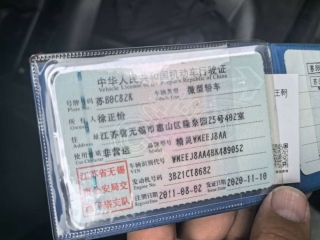 中华人民共和国机动车行驶证
Vehicle License of the People's Republic of China
号牌号码 苏B0C82K 车辆类型 微型轿车
所有人 徐正怡
住址 江苏省无锡市惠山区隆泰园25号402室
使用性质 非营运 品牌型号 精灵WMEEJ8AA
江苏省无锡
市公安局交
车辆识别代号 WMEEJ8AA4BK489052
发动机号码 3B21CT8682
注册日期 2011-08-02 发证日期 2020-11-10